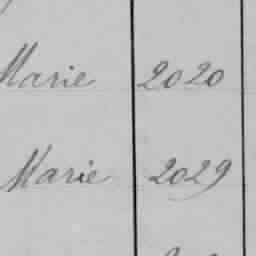 Marie 2020
Marie 2029